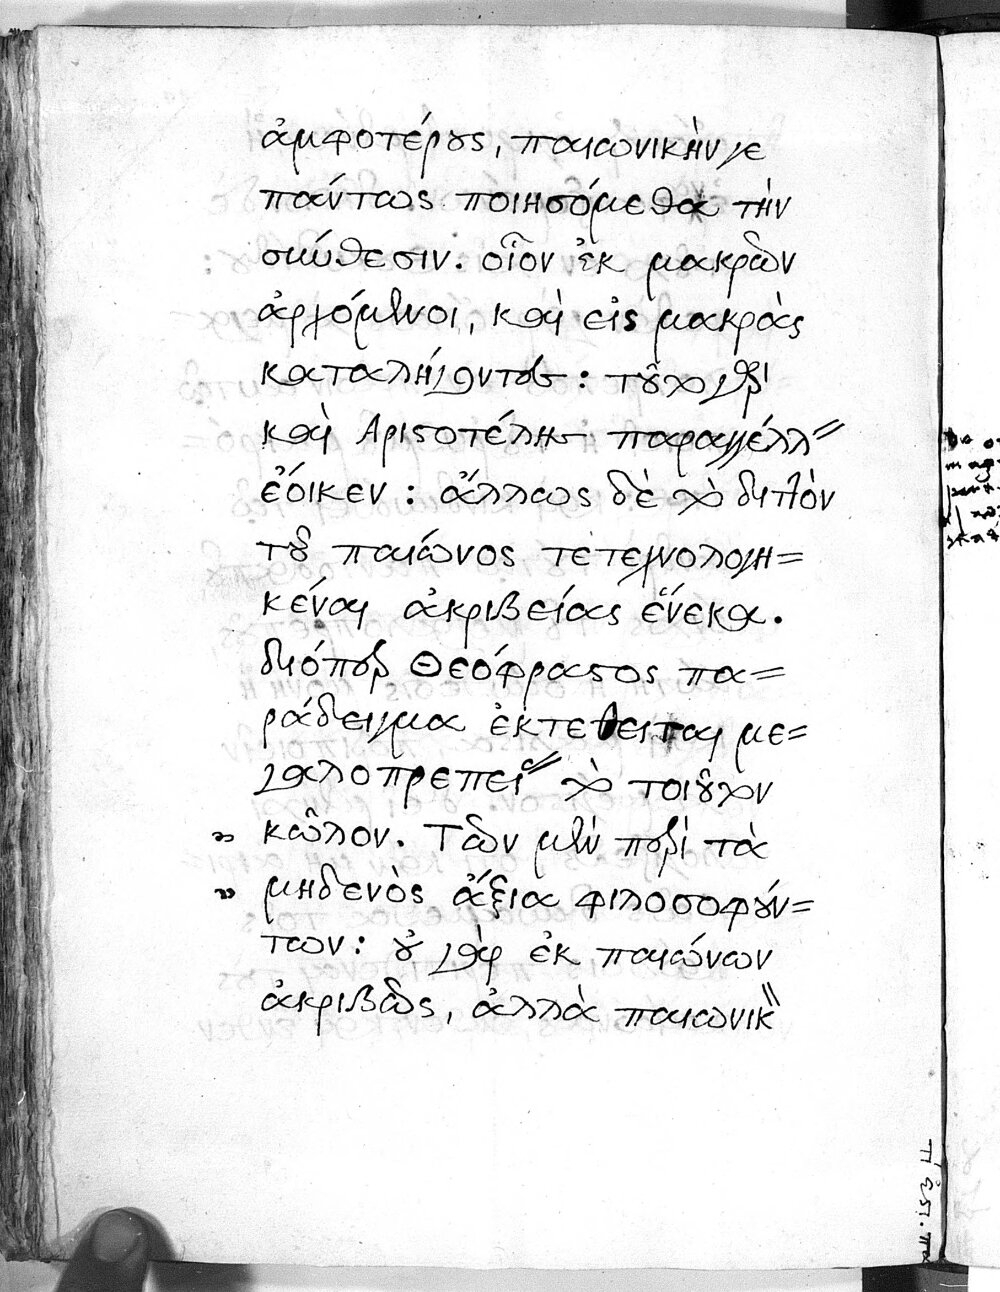 ἀμφοτέρους, παιωνικήν γε
πάντως ποιησόμεθα τὴν
σύνθεσιν. οἷον ἐκ μακρῶν
ἀρχόμενοι, καὶ εἰς μακρὰς
καταλήγοντες: τοῦτο γὰρ
καὶ Ἀριστοτέλης παραγγέλλειν
ἔοικεν: ἄλλως δὲ τὸ διττὸν
τοῦ παιῶνος τετεχνολογη=
κέναι ἀκριβείας ἕνεκα.
διόπερ Θεόφραστος πα=
ράδειγμα ἐκτέθειται με=
γαλοπρεπείας τὸ τοιοῦτον
κῶλον. Τῶν μὲν περὶ τὰ
μηδενὸς ἄξια φιλοσοφούν=
των: οὐ γὰρ ἐκ παιώνων
ἀκριβῶς, ἀλλὰ παιωνικ